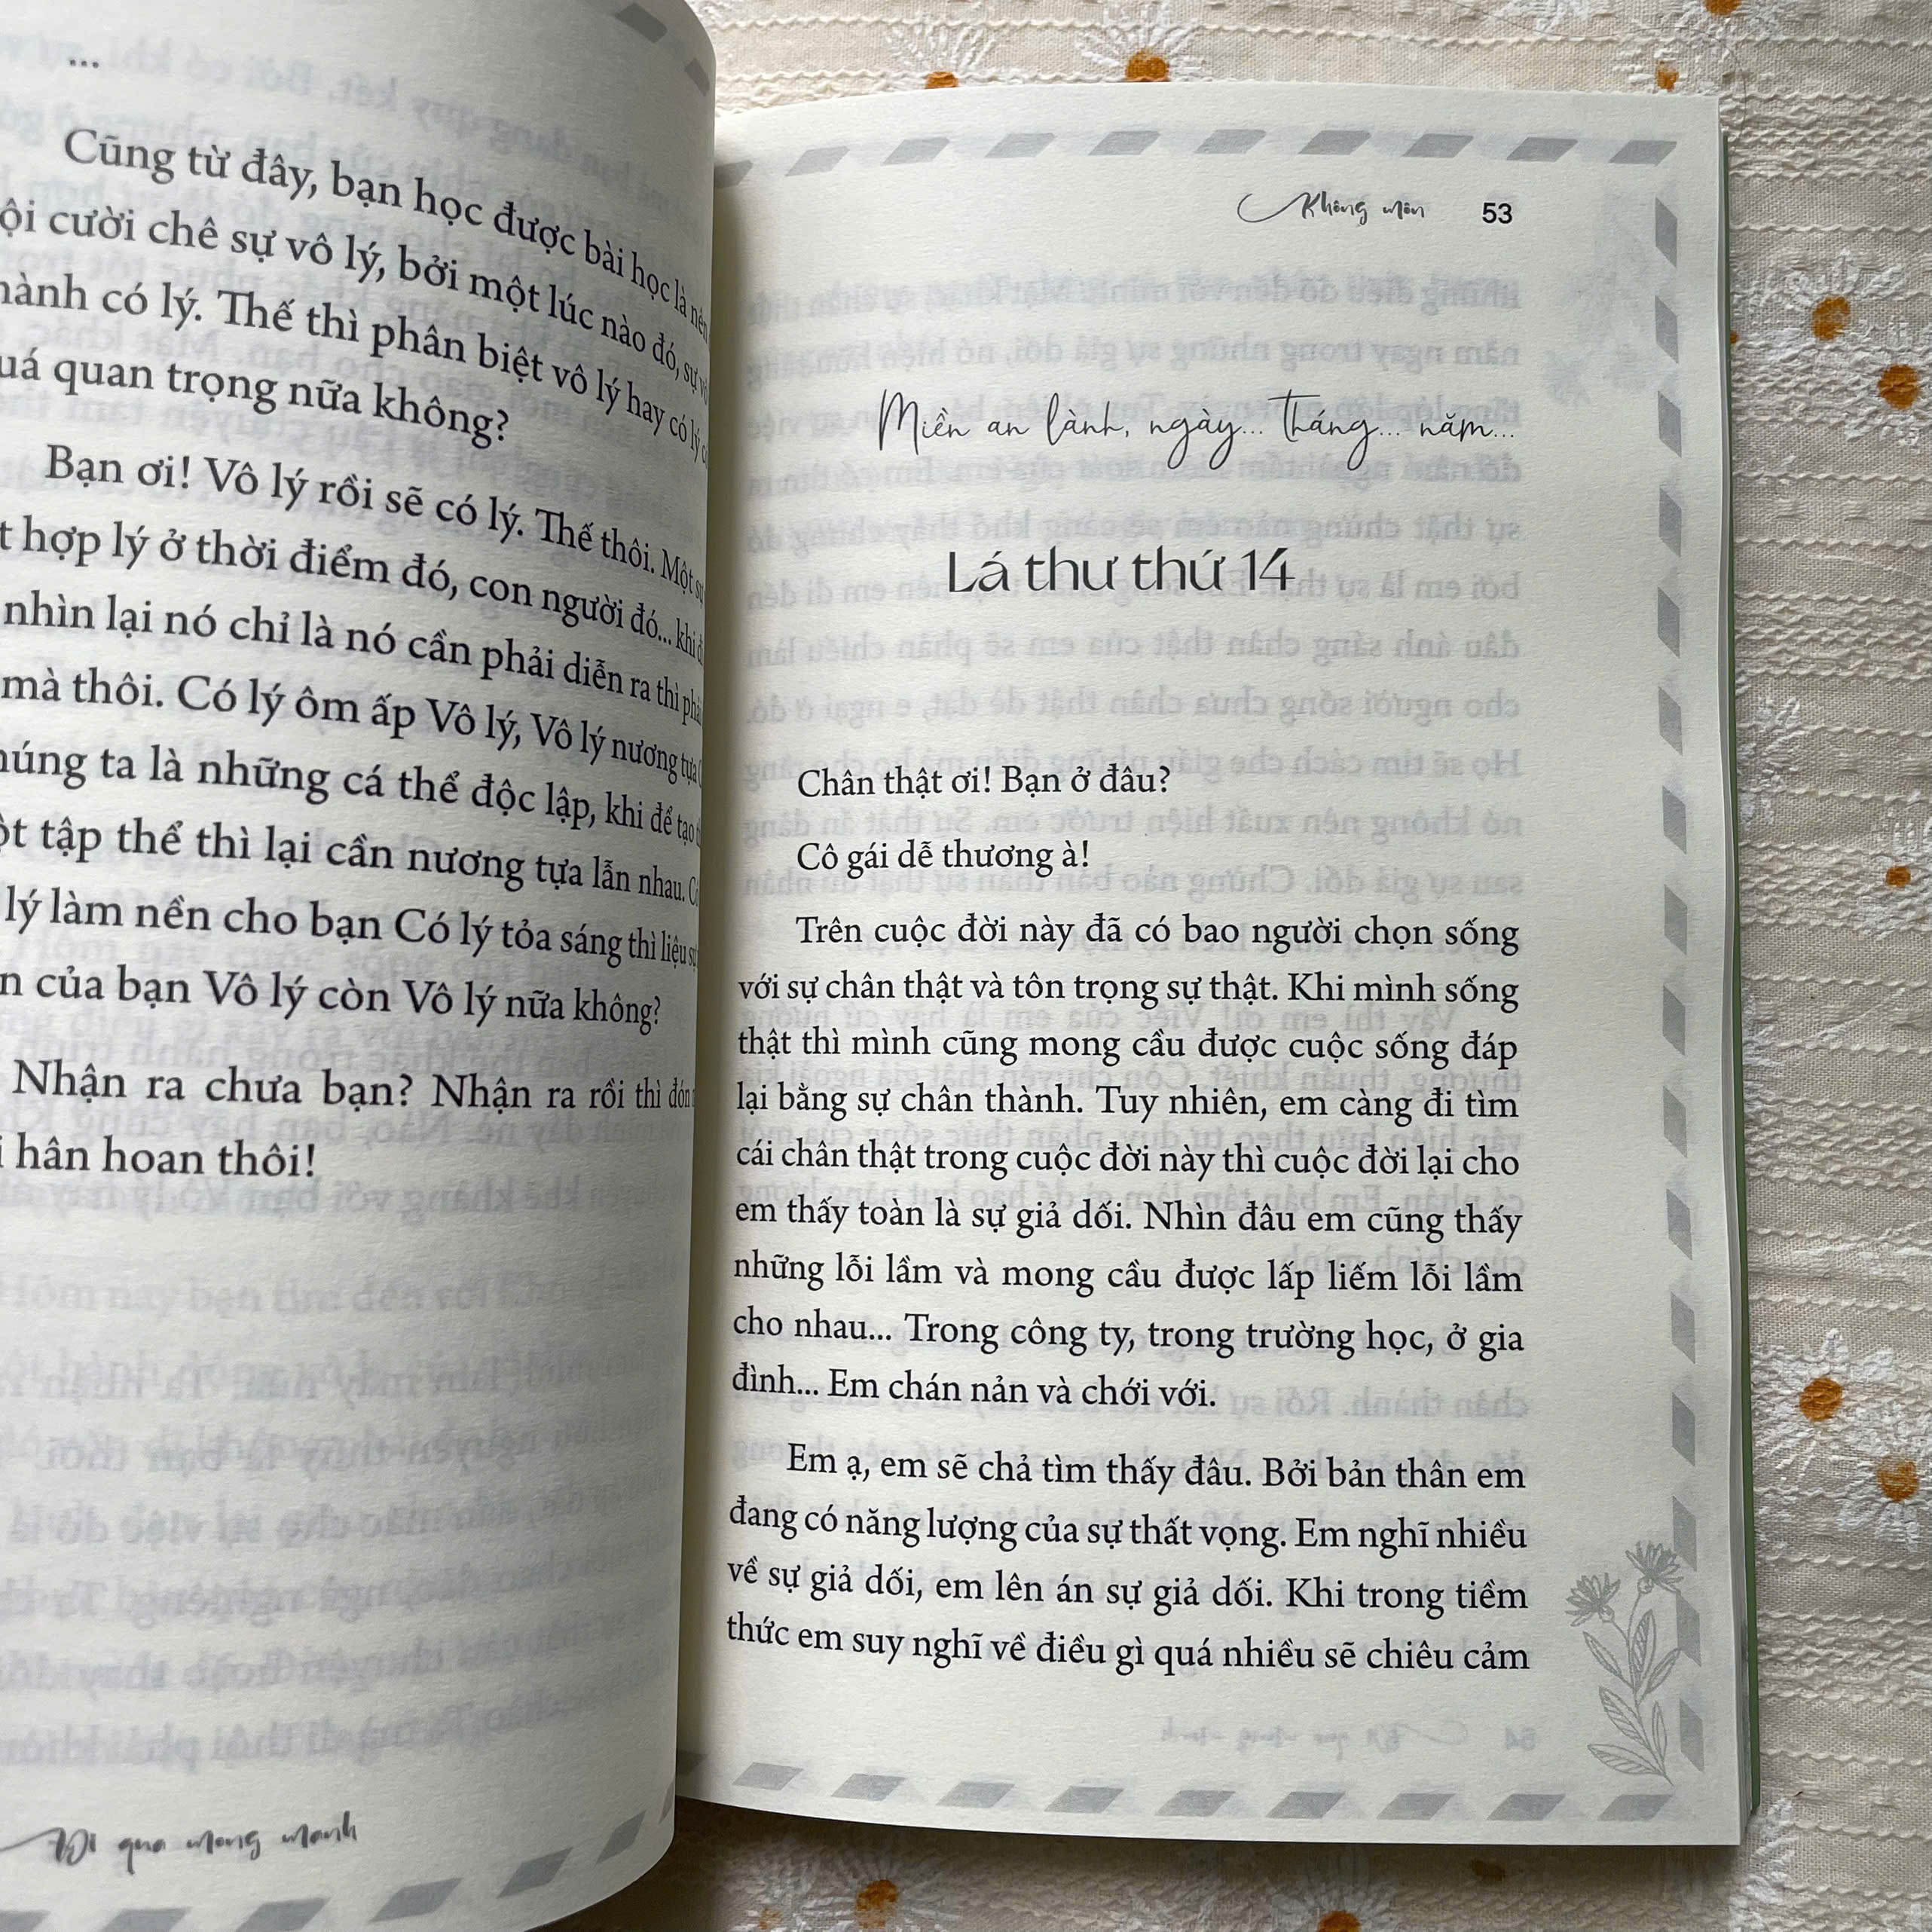 ...
Cũng từ đây, bạn học được bài học là nên
cười chê sự vô lý, bởi một lúc nào đó, sự vô
có lý. Thế thì phân biệt vô lý hay có lý
quan trọng nữa không?
Bạn ơi! Vô lý rồi sẽ có lý. Thế thôi. Một sự
hợp lý ở thời điểm đó, con người đó... khi
nhìn lại nó chỉ là nó cần phải diễn ra thì phải
mà thôi. Có lý ôm ấp Vô lý, Vô lý nương tựa
ta là những cá thể độc lập, khi để tạo
tập thể thì lại cần nương tựa lẫn nhau.
lý làm nền cho bạn Có lý tỏa sáng thì liệu
của bạn Vô lý còn Vô lý nữa không?
Nhận ra chưa bạn? Nhận ra rồi thì đón
hân hoan thôi!
Đi qua mong manh
Không môn 53
Miền an lành, ngày... tháng... năm...
Lá thư thứ 14
Chân thật ơi! Bạn ở đâu?
Cô gái dễ thương à!
Trên cuộc đời này đã có bao người chọn sống
với sự chân thật và tôn trọng sự thật. Khi mình sống
thật thì mình cũng mong cầu được cuộc sống đáp
lại bằng sự chân thành. Tuy nhiên, em càng đi tìm
cái chân thật trong cuộc đời này thì cuộc đời lại cho
em thấy toàn là sự giả dối. Nhìn đâu em cũng thấy
những lỗi lầm và mong cầu được lấp liếm lỗi lầm
cho nhau... Trong công ty, trong trường học, ở gia
đình... Em chán nản và chới với.
Em ạ, em sẽ chả tìm thấy đâu. Bởi bản thân em
đang có năng lượng của sự thất vọng. Em nghĩ nhiều
về sự giả dối, em lên án sự giả dối. Khi trong tiềm
thức em suy nghĩ về điều gì quá nhiều sẽ chiêu cảm